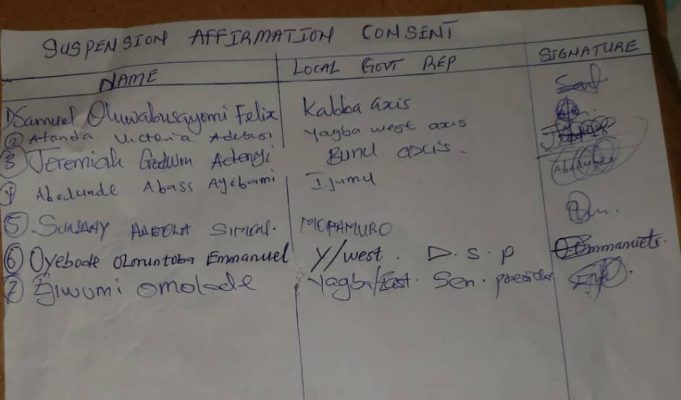 SUSPENSION AFFIRMATION CONSENT
NAME LOCAL GOVT REP SIGNATURE
1) Samuel Oluwabusayomi Felix Kabba axis
2 Atanda Victoria Yagba west axis
3 Jeremiah Godwin Bunu axis.
4 Abodunde Abass Ayobami Ijumu Abodunde
5 SUNDAY SIMEON. MOPAMURO
6 Oyebode Oloruntoba Emmanuel Y/west. D.S.P
7 Ejiwumi omolade Yagba/East. Sen. president